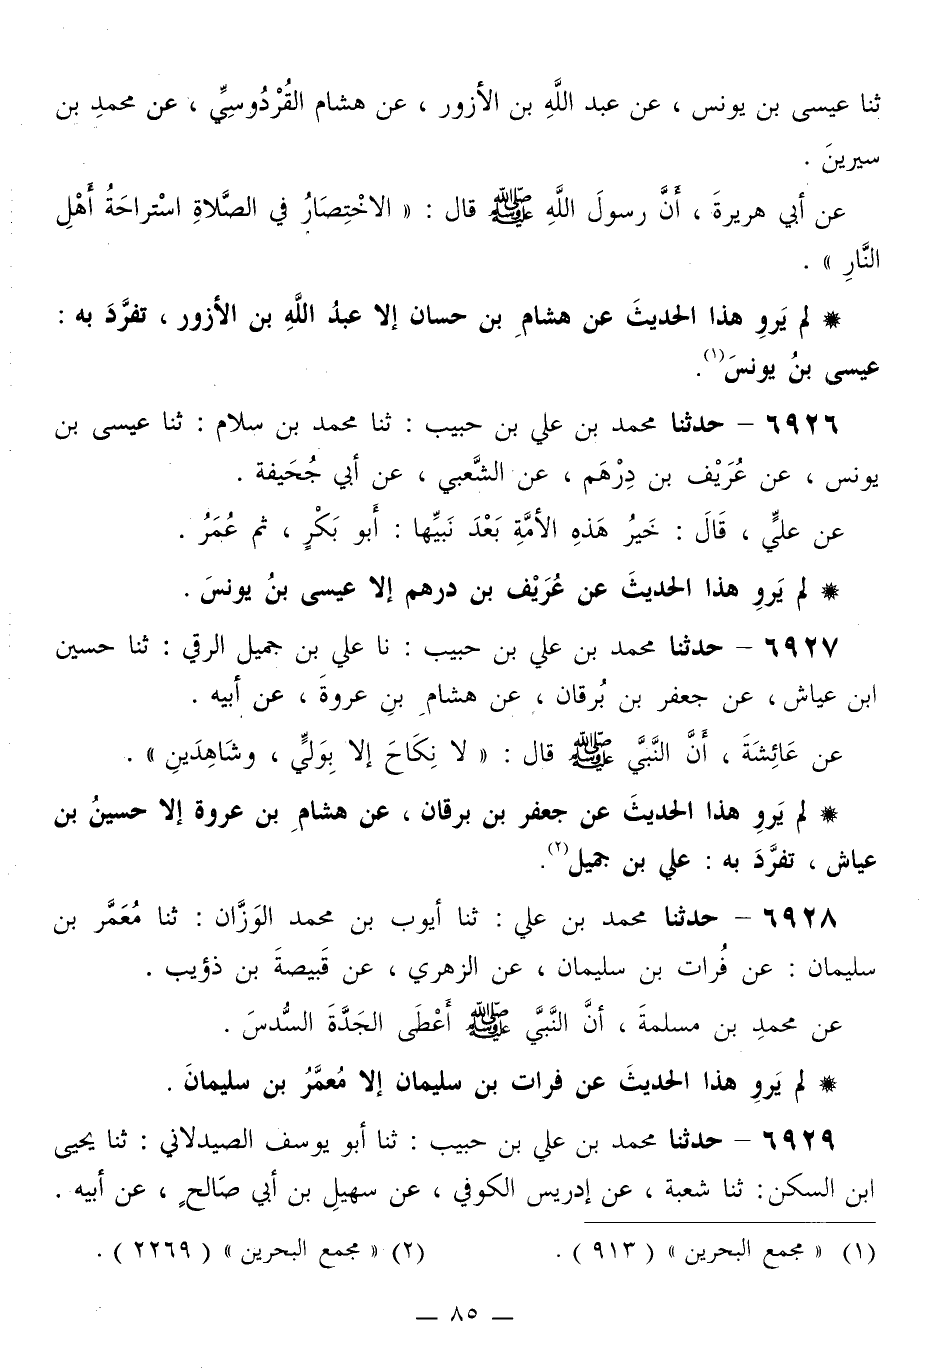 ثنا عيسى بن يونس ، عن عبد اللَّهِ بن الأزور ، عن هشام القُرْدُوسِيِّ ، عن محمدِ بن
سيرينَ .
عن أبي هريرةَ ، أَنَّ رسولَ اللَّهِ ﷺ قال : « الاخْتِصَارُ في الصَّلاةِ اسْتراحَةُ أَهْلِ
النَّارِ » .
* لم يَروِ هذا الحديثَ عن هشامِ بن حسان إلا عبدُ اللَّهِ بن الأزور ، تفرَّدَ به :
عيسى بنُ يونسَ(١).
٦٩٢٦ – حدثنا محمد بن علي بن حبيب : ثنا محمد بن سلام : ثنا عيسى بن
يونس ، عن عُرَيْف بن دِرْهَم ، عن الشَّعبي ، عن أبي جُحَيفة .
عن عليٍّ ، قَالَ : خَيرُ هَذهِ الأمَّةِ بَعْدَ نَبيِّها : أَبو بَكْرٍ ، ثم عُمَرُ .
* لم يَروِ هذا الحديثَ عن عُرَيْف بن درهم إلا عيسى بنُ يونسَ .
٦٩٢٧ – حدثنا محمد بن علي بن حبيب : نا علي بن جميل الرقي : ثنا حسين
ابن عياش ، عن جعفر بن بُرقان ، عن هشامِ بنِ عروةَ ، عن أبيه .
عن عَائِشَةَ ، أَنَّ النَّبيَّ ﷺ قال : « لا نِكَاحَ إلا بِوَليٍّ ، وشَاهِدَينِ » .
* لم يَروِ هذا الحديثَ عن جعفر بن برقان ، عن هشامِ بن عروة إلا حسينُ بن
عياش ، تفرَّدَ به : علي بن جميل(٢).
٦٩٢٨ – حدثنا محمد بن علي : ثنا أيوب بن محمد الوَزَّان : ثنا مُعَمَّر بن
سليمان : عن فُرات بن سليمان ، عن الزهري ، عن قَبيصةَ بن ذؤيب .
عن محمدِ بن مسلمةَ ، أنَّ النَّبيَّ ﷺ أَعْطَى الجَدَّةَ السُّدسَ .
* لم يَروِ هذا الحديثَ عن فرات بن سليمان إلا مُعمَّرُ بن سليمانَ .
٦٩٢٩ – حدثنا محمد بن علي بن حبيب : ثنا أبو يوسف الصيدلاني : ثنا يحيى
ابن السكن : ثنا شعبة ، عن إدريس الكوفي ، عن سهيلِ بن أبي صَالحٍ ، عن أبيه .
(١) « مجمع البحرين » ( ٩١٣ ) . (٢) « مجمع البحرين » ( ٢٢٦٩ ) .
— ٨٥ —